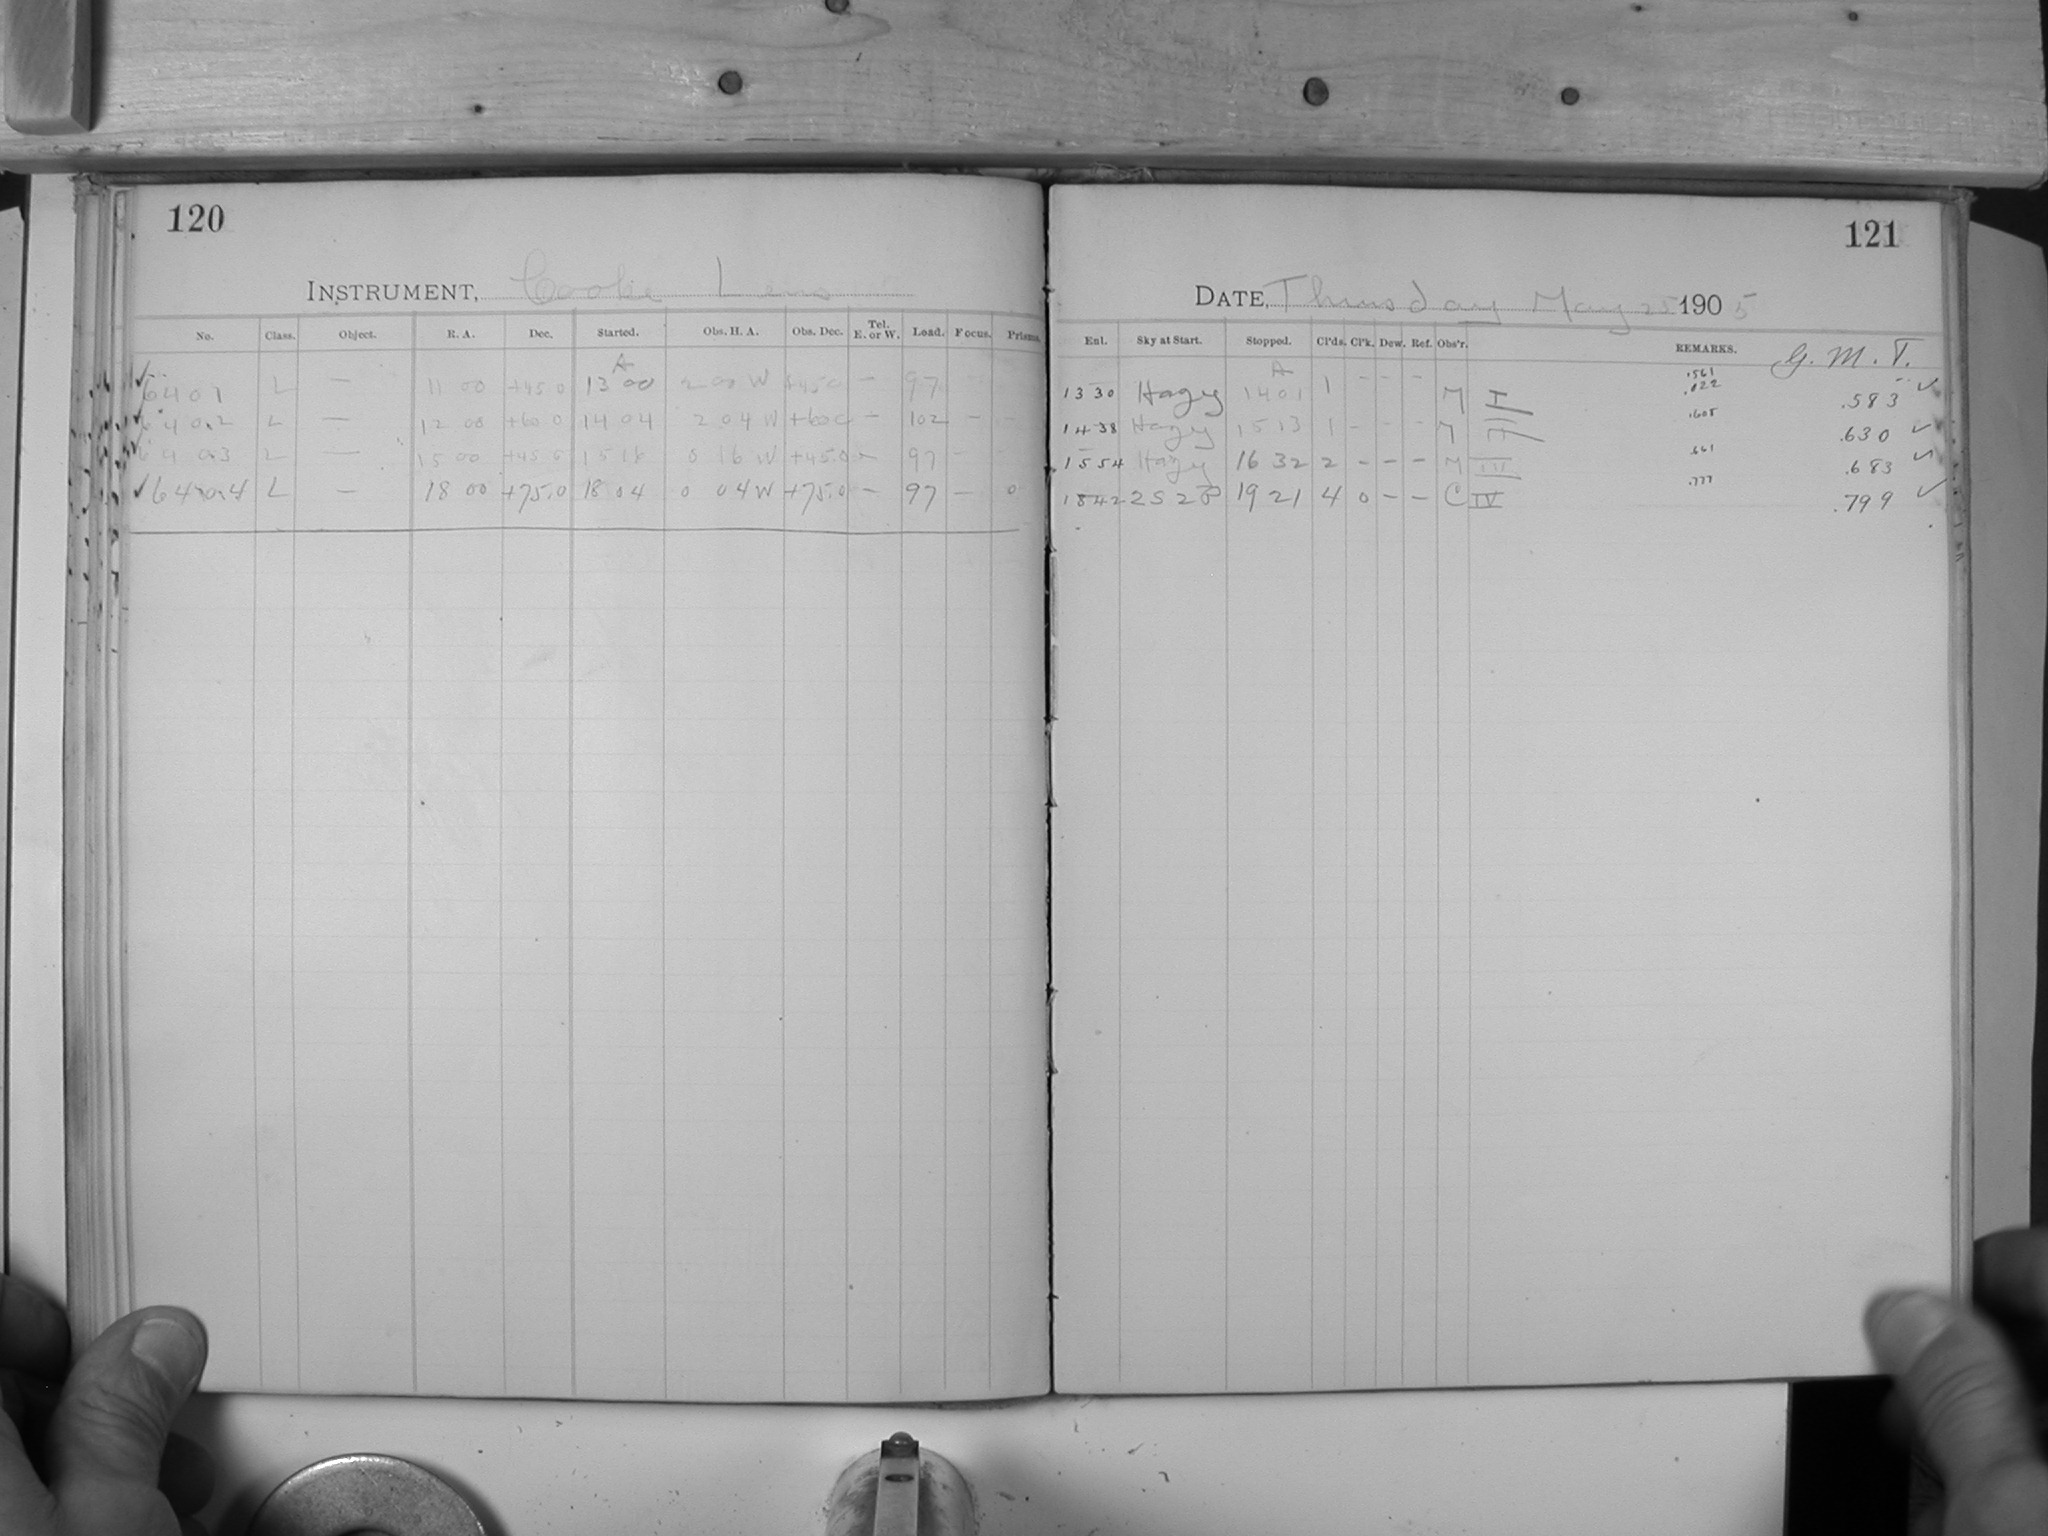 120
INSTRUMENT, Cooke Lens
No. Class. Object. R. A. Dec. Started. Obs. H. A. Obs. Dec. Tel. E. or W. Load. Focus. Prisms.
A
✓ 6401 L — 11 00 +45.0 13 00 2 00 W +45.0 — 97 –
✓ 6402 L — 12 00 +60.0 14 04 2 04 W +60.0 — 102 – –
✓ 6403 L — 15 00 +45.0 15 18 0 16 W +45.0 – 97 –
✓ 6404 L — 18 00 +75.0 18 04 0 04 W +75.0 — 97 – 0
121
DATE, Thursday May 25 1905
Enl. Sky at Start. Stopped. Cl'ds. Cl'k. Dew. Ref. Obs'r. REMARKS. G. M. T.
A
.561
13 30 Hazy 14 01 1 – – – M I .022 .583 ✓
14 38 Hazy 15 13 1 – – – M II .608 .630 ✓
15 54 Hazy 16 32 2 – – – M III .661 .683 ✓
18 42 2S2P 19 21 4 0 – – C IV .777 .799 ✓